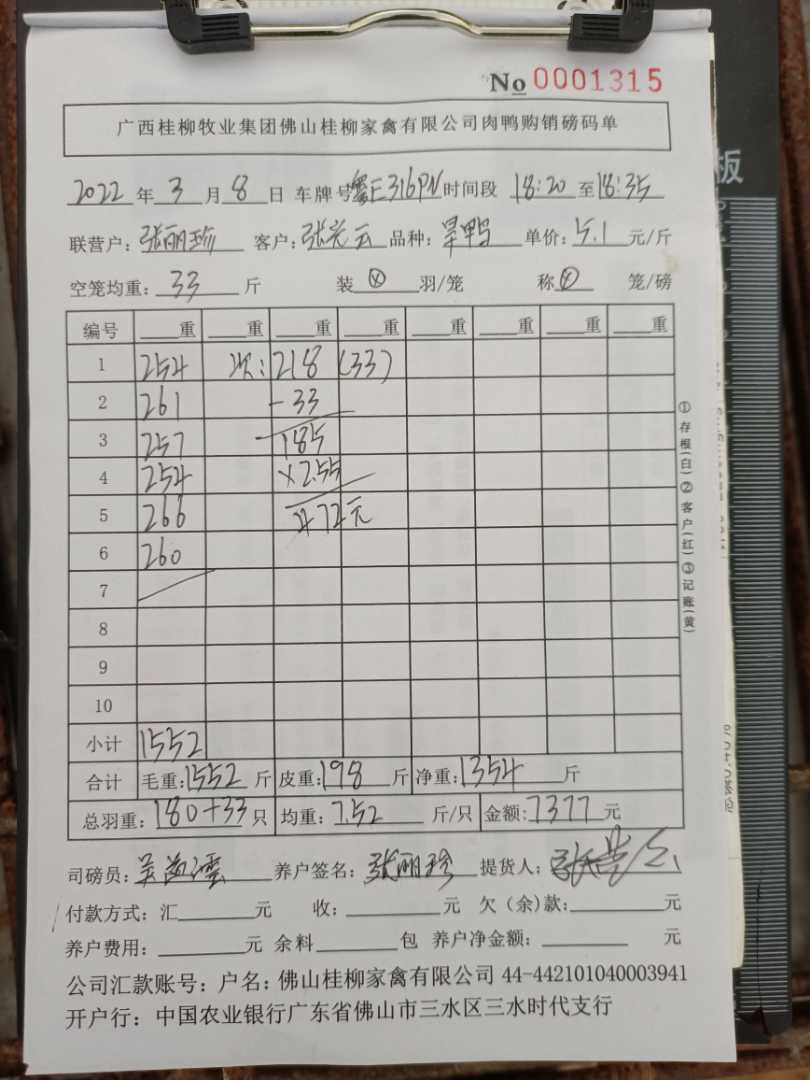 No 0001315
广西桂柳牧业集团佛山桂柳家禽有限公司肉鸭购销磅码单
2022 年 3 月 8 日 车牌号粤E316PN 时间段 18:20 至 18:35
联营户: 张丽珍 客户: 张光云 品种: 旱鸭 单价: 5.1 元/斤
空笼均重: 33 斤 装 ⊗ 羽/笼 称 笼/磅
编号 重 重 重 重 重 重 重 重
1 254 次: 218 (33)
2 261 - 33
3 257 185
4 254 ×2.55
5 266 472元
6 260
7
8
9
10
小计 1552
合计 毛重: 1552 斤 皮重: 198 斤 净重: 1354 斤
总羽重: 180+33 只 均重: 7.52 斤/只 金额: 7377 元
司磅员: 养户签名: 张丽珍 提货人:
付款方式: 汇 元 收: 元 欠(余)款: 元
养户费用: 元 余料 包 养户净金额: 元
公司汇款账号: 户名: 佛山桂柳家禽有限公司 44-442101040003941
开户行: 中国农业银行广东省佛山市三水区三水时代支行
①存根(白)②客户(红)③记账(黄)
板